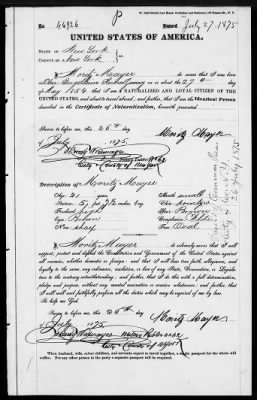 P
No. 46926
Issued July 27. 1875
UNITED STATES OF AMERICA.
STATE OF New York
COUNTY OF New York
I, Moritz Meyer do swear that I was born in
Germany on the 27th day of
May 1854 that I am a NATURALIZED AND LOYAL CITIZEN OF THE
UNITED STATES, and about to travel abroad; and further, that I am the Identical Person
described in the Certificate of Naturalization, herewith presented
Sworn to before me, this 26th day
of July 1875.
City & County of New York
Description of Moritz Meyer
Age: 21 years
Mouth: small
Stature: 5
Forehead: high
Eyes: Brown
Hair: Brown
Nose: sharp
Face: Oval
I, Moritz Meyer do solemnly swear that I will
support, protect and defend the Constitution and Government of the United States against
all enemies, whether domestic or foreign; and that I will bear true faith, allegiance, and
loyalty to the same, any ordinance, resolution, or law of any State, Convention, or Legisla-
ture to the contrary notwithstanding; and further, that I do this with a full determination,
pledge and purpose, without any mental reservation or evasion whatsoever; and further,
that I will well and faithfully perform all the duties which may be required of me by law.
So help me God.
Sworn to before me, this 26th day
of July 1875
City & County of New York
When husband, wife, minor children, and servants expect to travel together, a single passport for the whole will
suffice. For any other person in the party a separate passport will be required.